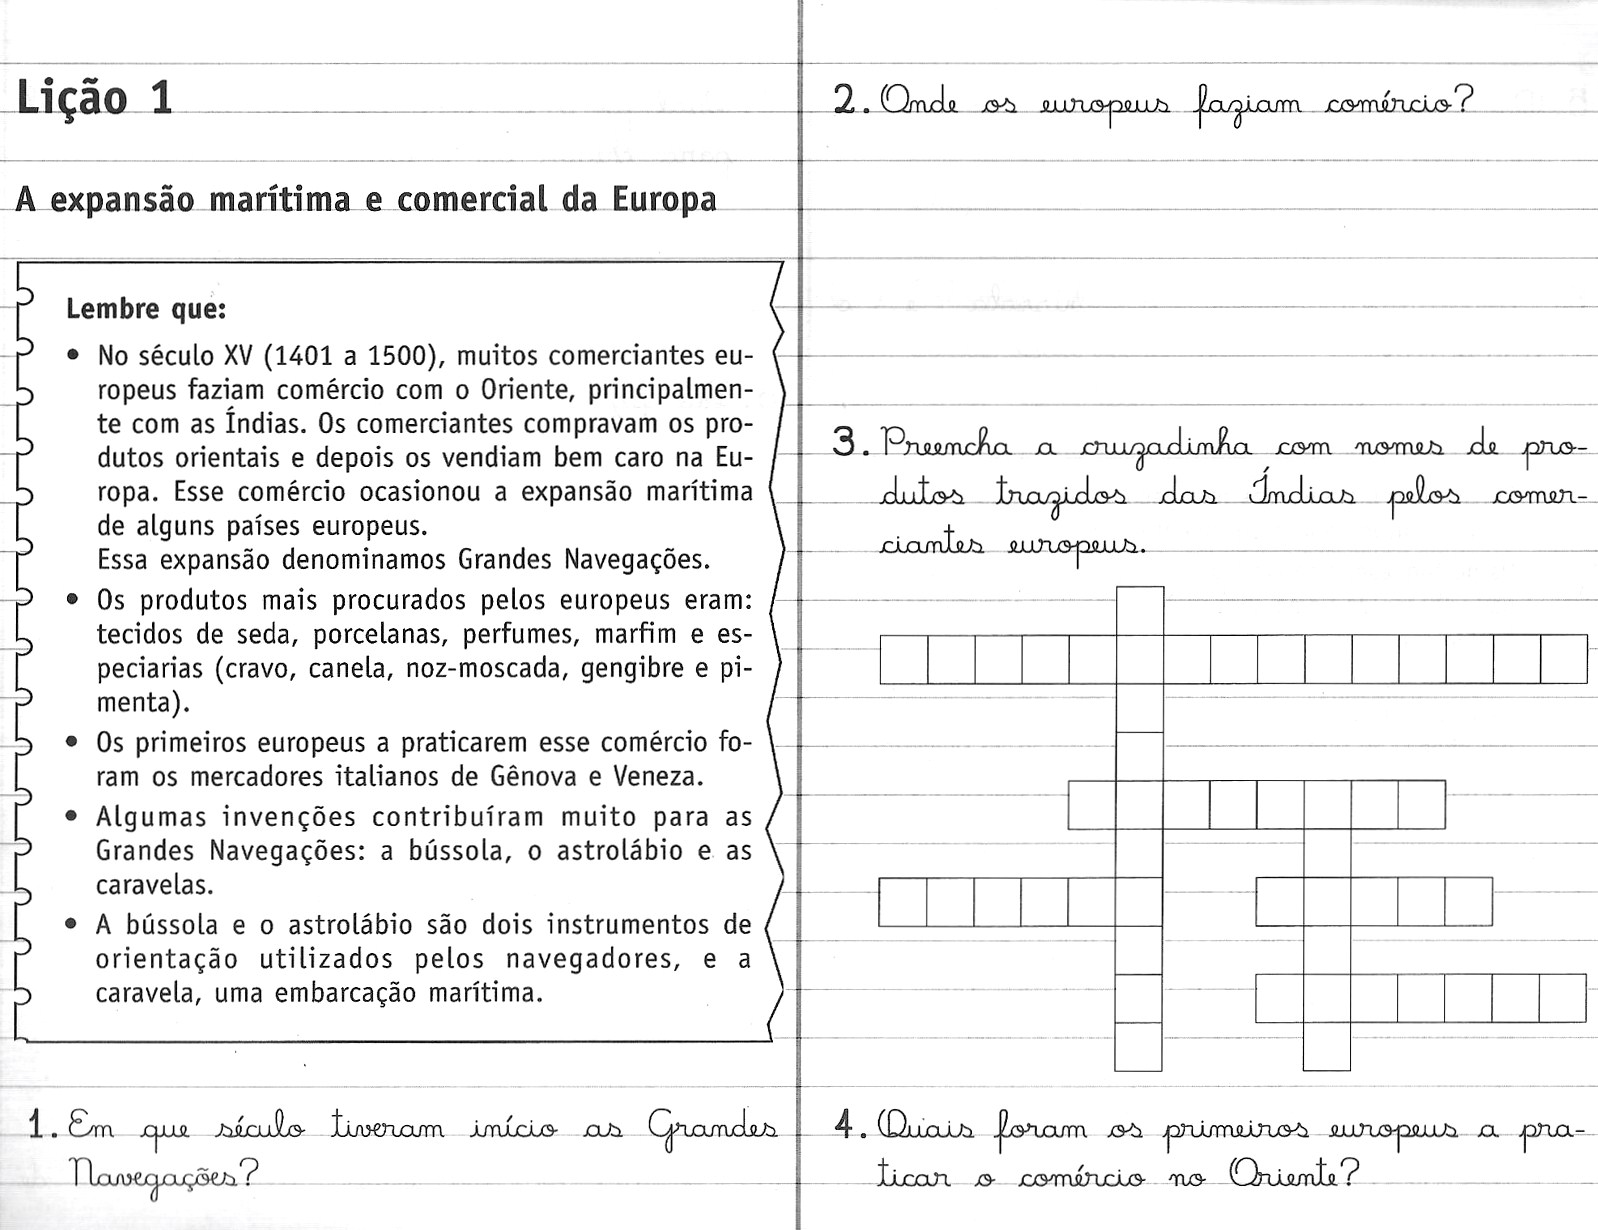 Lição 1
A expansão marítima e comercial da Europa
Lembre que:
• No século XV (1401 a 1500), muitos comerciantes eu-
ropeus faziam comércio com o Oriente, principalmen-
te com as Índias. Os comerciantes compravam os pro-
dutos orientais e depois os vendiam bem caro na Eu-
ropa. Esse comércio ocasionou a expansão marítima
de alguns países europeus.
Essa expansão denominamos Grandes Navegações.
• Os produtos mais procurados pelos europeus eram:
tecidos de seda, porcelanas, perfumes, marfim e es-
peciarias (cravo, canela, noz-moscada, gengibre e pi-
menta).
• Os primeiros europeus a praticarem esse comércio fo-
ram os mercadores italianos de Gênova e Veneza.
• Algumas invenções contribuíram muito para as
Grandes Navegações: a bússola, o astrolábio e as
caravelas.
• A bússola e o astrolábio são dois instrumentos de
orientação utilizados pelos navegadores, e a
caravela, uma embarcação marítima.
1. Em que século tiveram início as Grandes
Navegações?
2. Onde os europeus faziam comércio?
3. Preencha a cruzadinha com nomes de pro-
dutos trazidos das Índias pelos comer-
ciantes europeus.
4. Quais foram os primeiros europeus a pra-
ticar o comércio no Oriente?